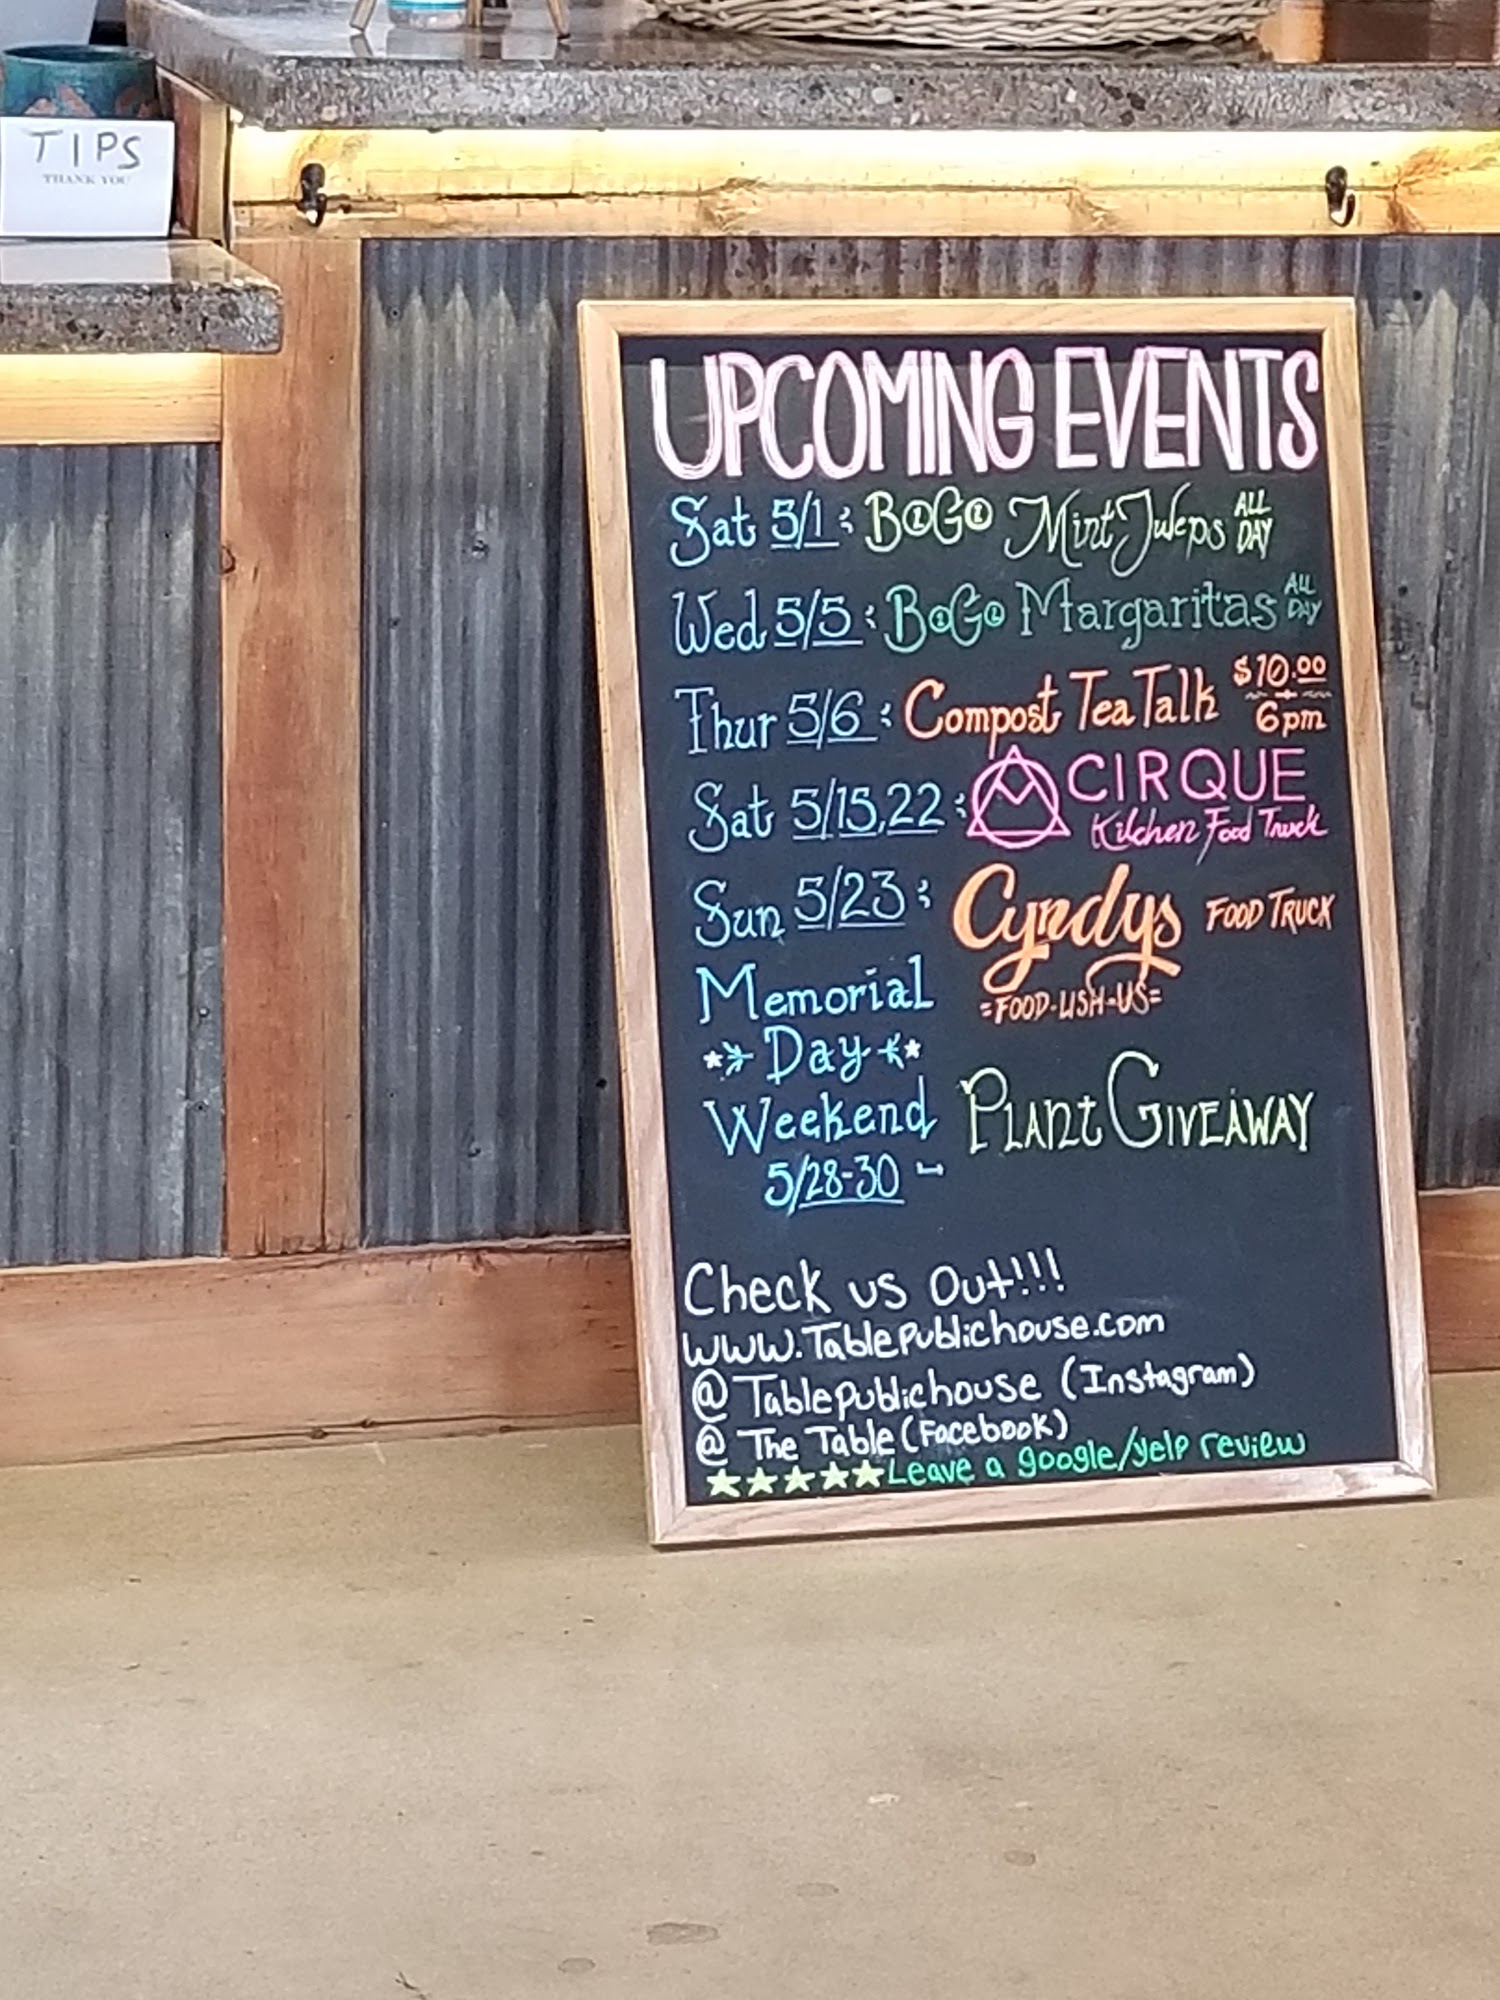 TIPS
THANK YOU
UPCOMING EVENTS
Sat 5/1: BOGO Mint Juleps ALL DAY
Wed 5/5: BOGO Margaritas ALL DAY
Thur 5/6: Compost Tea Talk $10.00 6pm
Sat 5/15,22: CIRQUE
Kitchen Food Truck
Sun 5/23: Cyndys FOOD TRUCK
=FOOD-LISH-US=
Memorial
Day
Weekend
5/28-30 - Plant Giveaway
Check us out!!!
www.Tablepublichouse.com
@Tablepublichouse (Instagram)
@ The Table (Facebook)
★★★★★Leave a google/yelp review